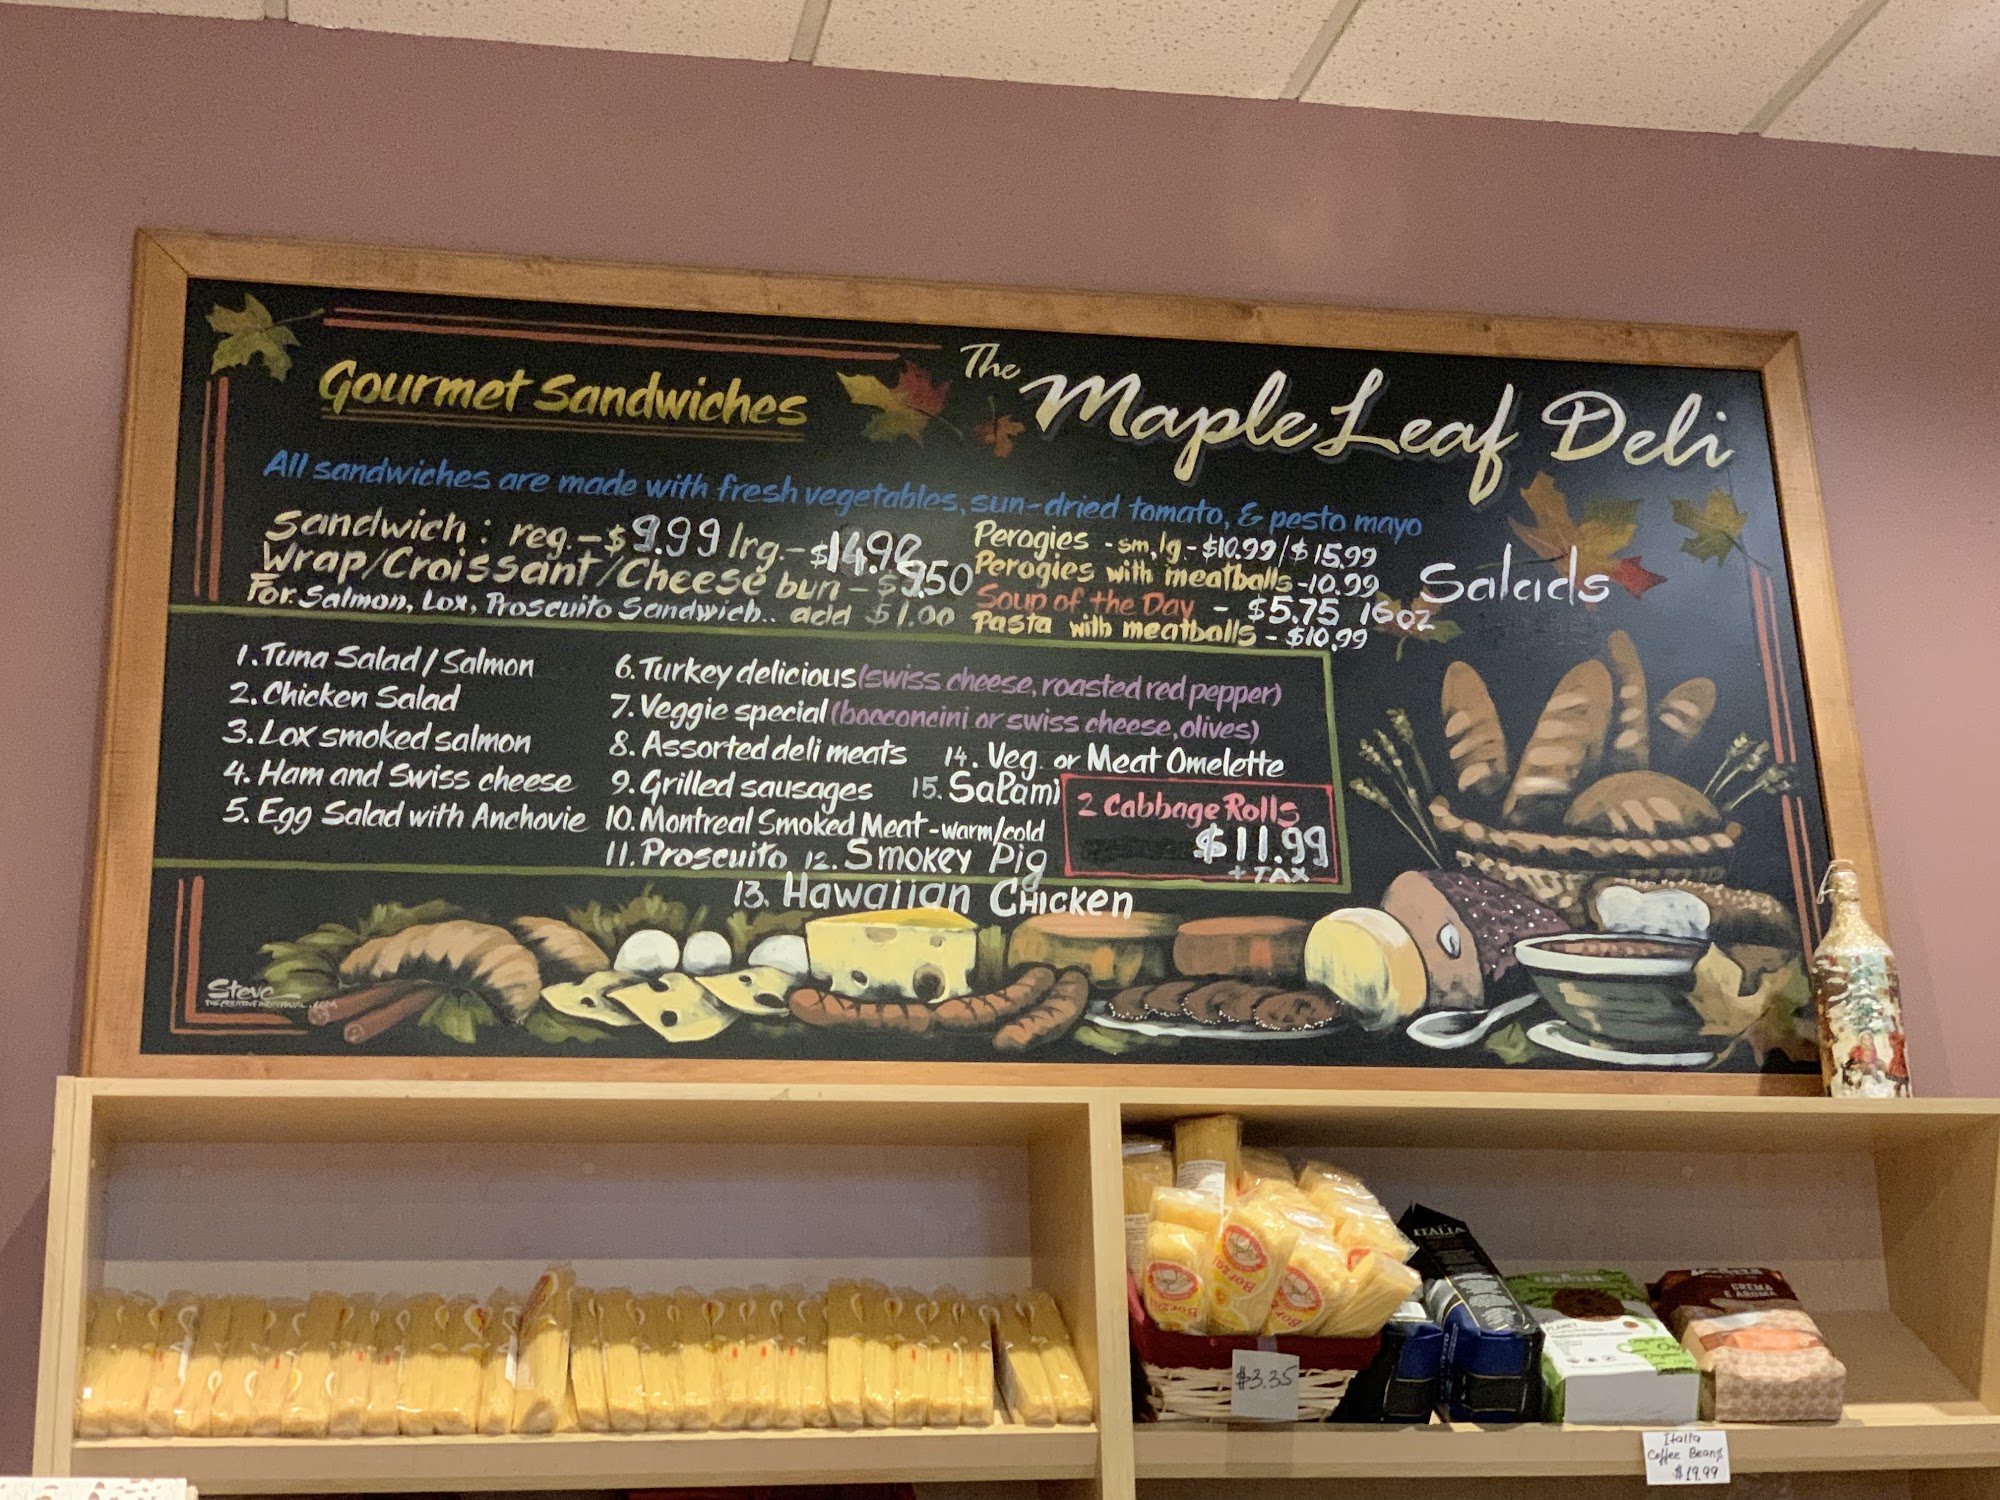 The
Maple Leaf Deli
Gourmet Sandwiches
All sandwiches are made with fresh vegetables, sun-dried tomato, & pesto mayo
Sandwich : reg. - $9.99 lrg. - $14.99
Wrap/Croissant/Cheese bun - $9.50
For Salmon, Lox, Proscuito Sandwich.. add $1.00
Perogies - sm, lg - $10.99/$15.99
Perogies with meatballs - 10.99
Soup of the Day - $5.75 16oz
Pasta with meatballs - $10.99
Salads
1. Tuna Salad / Salmon
2. Chicken Salad
3. Lox smoked salmon
4. Ham and Swiss cheese
5. Egg Salad with Anchovie
6. Turkey delicious (swiss cheese, roasted red pepper)
7. Veggie special (bocconcini or swiss cheese, olives)
8. Assorted deli meats
9. Grilled sausages
10. Montreal Smoked Meat - warm/cold
11. Proscuito 12. Smokey Pig
13. Hawaiian Chicken
14. Veg. or Meat Omelette
15. Salami
2 Cabbage Rolls
$11.99
+ TAX
Steve
ITALIA
CREMA
E AROMA
$3.35
Italia
Coffee Beans
$19.99